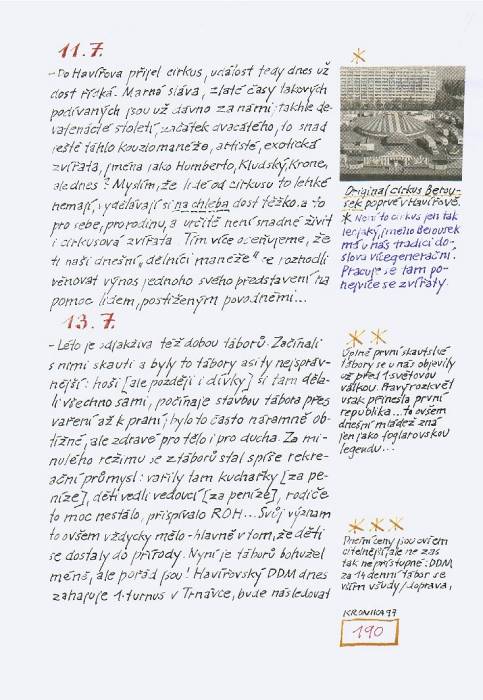 11.7.
– Do Havířova přijel cirkus, událost tedy dnes už
dost řídká. Marná sláva, zlaté časy takových
podívaných jsou už dávno za námi; takhle de-
vatenácté století, začátek dvacátého, to snad
ještě táhlo kouzlo manéže, artisté, exotická
zvířata, jména jako Humberto, Kludský, Krone,
ale dnes? Myslím, že lidé od cirkusu to lehké
nemají, vydělávají si na chleba dost těžko. a to
pro sebe, pro rodinu, a určitě není snadné živit
i cirkusová zvířata. Tím více oceňujeme, že
ti naši dnešní „dělníci manéže“ se rozhodli
věnovat výnos jednoho svého představení na
pomoc lidem, postiženým povodněmi...
13.7.
– Léto je odjakživa též dobou táborů. Začínali
s nimi skauti a byly to tábory asi ty nejspráv-
nější: hoši [ale později i dívky] si tam děla-
li všechno sami, počínaje stavbou tábora přes
vaření až k praní; bylo to často náramně ob-
tížné, ale zdravé pro tělo i pro ducha. Za mi-
nulého režimu se z táborů stal spíše rekre-
ační průmysl: vařily tam kuchařky [za pe-
níze], děti vedli vedoucí [za peníze], rodiče
to moc nestálo, přispívalo ROH... Svůj význam
to ovšem vždycky mělo - hlavně v tom, že děti
se dostaly do přírody. Nyní je táborů bohužel
méně, ale pořád jsou! Havířovský DDM dnes
zahajuje 1. turnus v Trnávce, bude následovat
*
Original cirkus Berou-
sek poprvé v Havířově.
* Není to cirkus jen tak
lecjaký, jméno Berousek
má u nás tradici do-
slova vícegenerační.
Pracuje se tam po-
nejvíce se zvířaty.
* *
Úplně první skautské
tábory se u nás objevily
už před 1. světovou
válkou. Pravý rozkvět
však přinesla první
republika... to ovšem
dnešní mládež zná
jen jako foglarovskou
legendu...
* * *
Dnešní ceny jsou ovšem
citelnější, ale ne zas
tak nepřístupné: DDM
za 14 denní tábor se
vším všudy /doprava,
KRONIKA 97
190